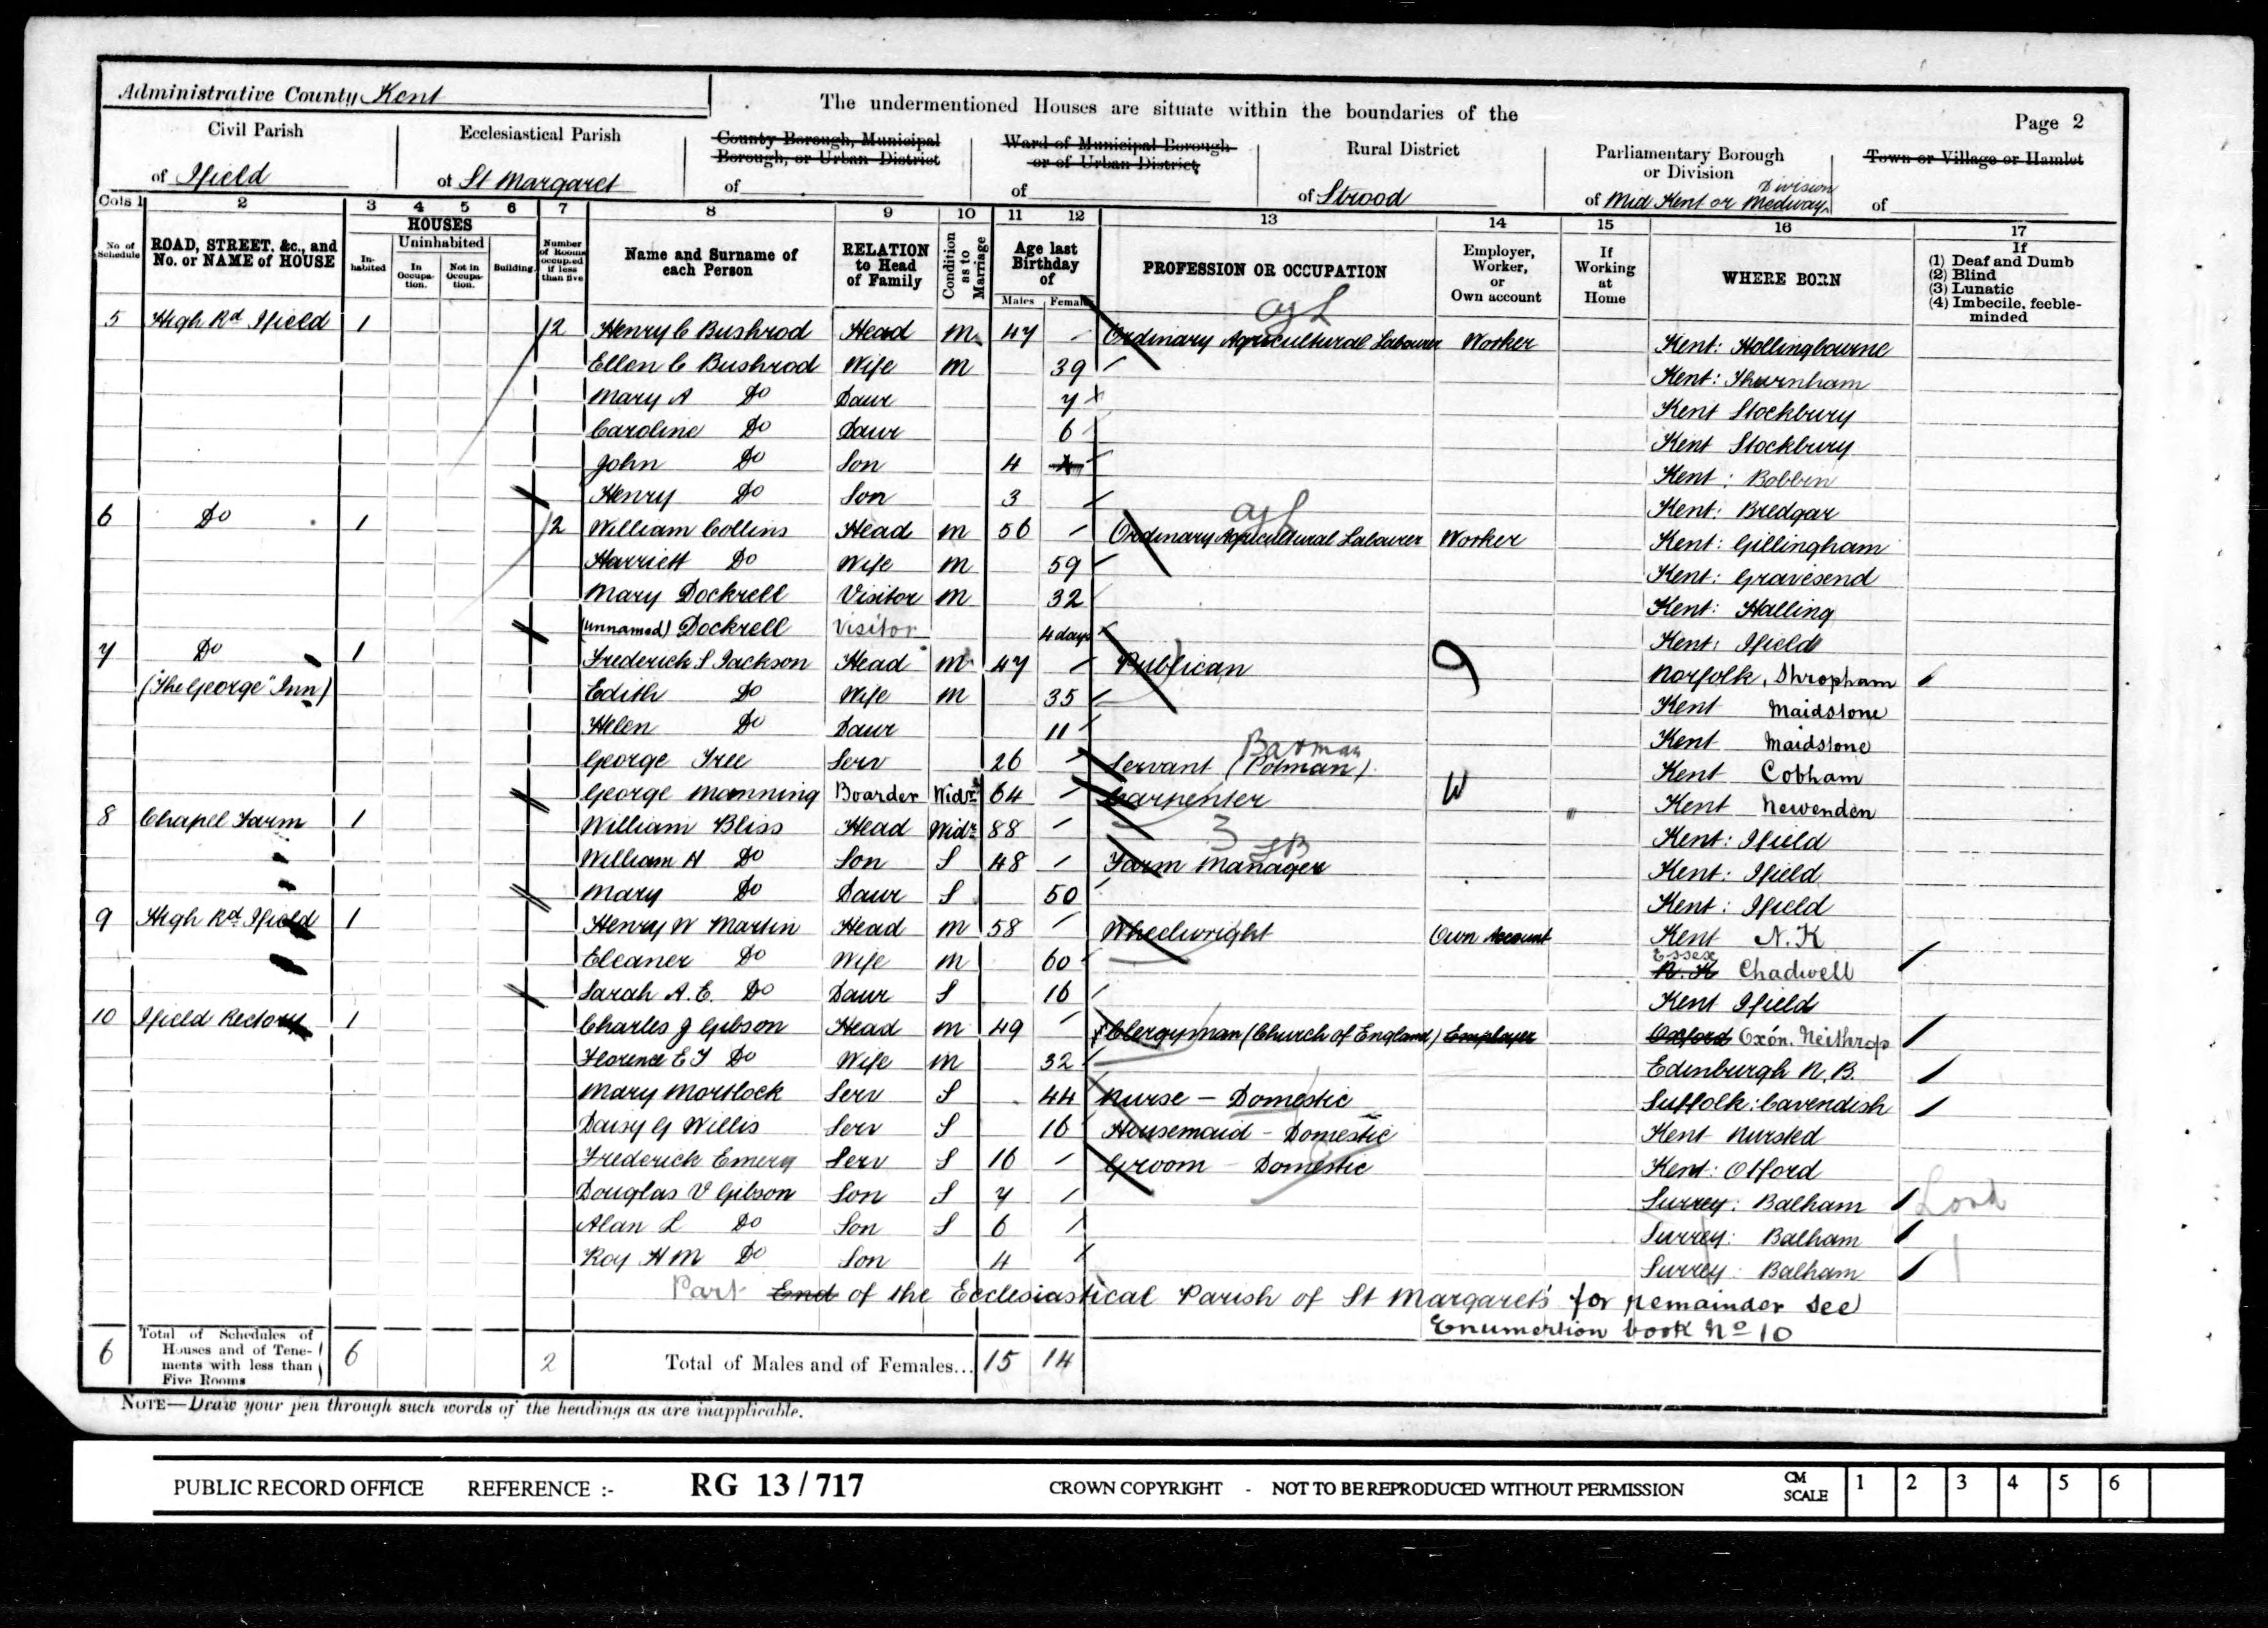 Administrative County Kent
The undermentioned Houses are situate within the boundaries of the
Page 2
Civil Parish
of Ifield
Ecclesiastical Parish
of St Margaret
County Borough, Municipal Borough, or Urban District
of
Ward of Municipal Borough or of Urban District
of
Rural District
of Strood
Parliamentary Borough or Division
of Mid Kent or Medway Division
Town or Village or Hamlet
of
Cols 1 2 3 4 5 6 7 8 9 10 11 12 13 14 15 16 17
No. of Schedule
ROAD, STREET, &c., and No. or NAME of HOUSE
HOUSES
Inhabited
Uninhabited
In Occupation.
Not in Occupation.
Building.
Number of Rooms occupied if less than five
Name and Surname of each Person
RELATION to Head of Family
Condition as to Marriage
Age last Birthday of
Males Females
PROFESSION OR OCCUPATION
Employer, Worker, or Own account
If Working at Home
WHERE BORN
If
(1) Deaf and Dumb
(2) Blind
(3) Lunatic
(4) Imbecile, feeble-minded
Ag L
5 High Rd Ifield 1 2 Henry C Bushrod Head M 47 Ordinary Agricultural Labourer Worker Kent: Hollingbourne
Ellen C Bushrod Wife M 39 Kent: Thurnham
Mary A Do Daur 7 Kent Stockbury
Caroline Do Daur 6 Kent Stockbury
John Do Son 4 Kent: Bobbin
Henry Do Son 3 Kent: Bredgar
Ag L
6 Do 1 2 William Collins Head M 56 Ordinary Agricultural Labourer Worker Kent: Gillingham
Harriett Do Wife M 59 Kent: Gravesend
Mary Dockrell Visitor M 32 Kent: Halling
(unnamed) Dockrell Visitor 4 days Kent: Ifield
7 Do 1 Frederick S Jackson Head M 47 Publican Norfolk, Shropham
("The George" Inn) Edith Do Wife M 35 Kent Maidstone
Helen Do Daur 11 Kent Maidstone
Barman
George Tree Serv 26 Servant (Potman) Kent Cobham
George Manning Boarder Widr 64 Carpenter W Kent Newenden
8 Chapel Farm 1 William Bliss Head Widr 88 Kent: Ifield
William H Do Son S 48 Farm Manager Kent: Ifield
Mary Do Daur S 50 Kent: Ifield
9 High Rd Ifield 1 Henry W Martin Head M 58 Wheelwright Own Account Kent N.K
Eleaner Do Wife M 60 N.K Essex Chadwell
Sarah A.E. Do Daur S 16 Kent Ifield
10 Ifield Rectory 1 Charles J Gibson Head M 49 Clergyman (Church of England) Employer Oxford Oxón. Neithrop
Florence E F Do Wife M 32 Edinburgh N.B.
Mary Mortlock Serv S 44 Nurse - Domestic Suffolk: Cavendish
Daisy G Willis Serv S 16 Housemaid - Domestic Kent Nursted
Frederick Emery Serv S 16 Groom - Domestic Kent: Otford
Douglas V Gibson Son S 7 Surrey: Balham
Alan L Do Son S 6 Surrey: Balham
Roy H M Do Son 4 Surrey: Balham
Part End of the Ecclesiastical Parish of St Margaret's for remainder see
Enumertion book No 10
6 Total of Schedules of Houses and of Tenements with less than Five Rooms 6 2 Total of Males and of Females... 15 14
NOTE—Draw your pen through such words of the headings as are inapplicable.
PUBLIC RECORD OFFICE REFERENCE :- RG 13/717 CROWN COPYRIGHT - NOT TO BE REPRODUCED WITHOUT PERMISSION CM SCALE 1 2 3 4 5 6